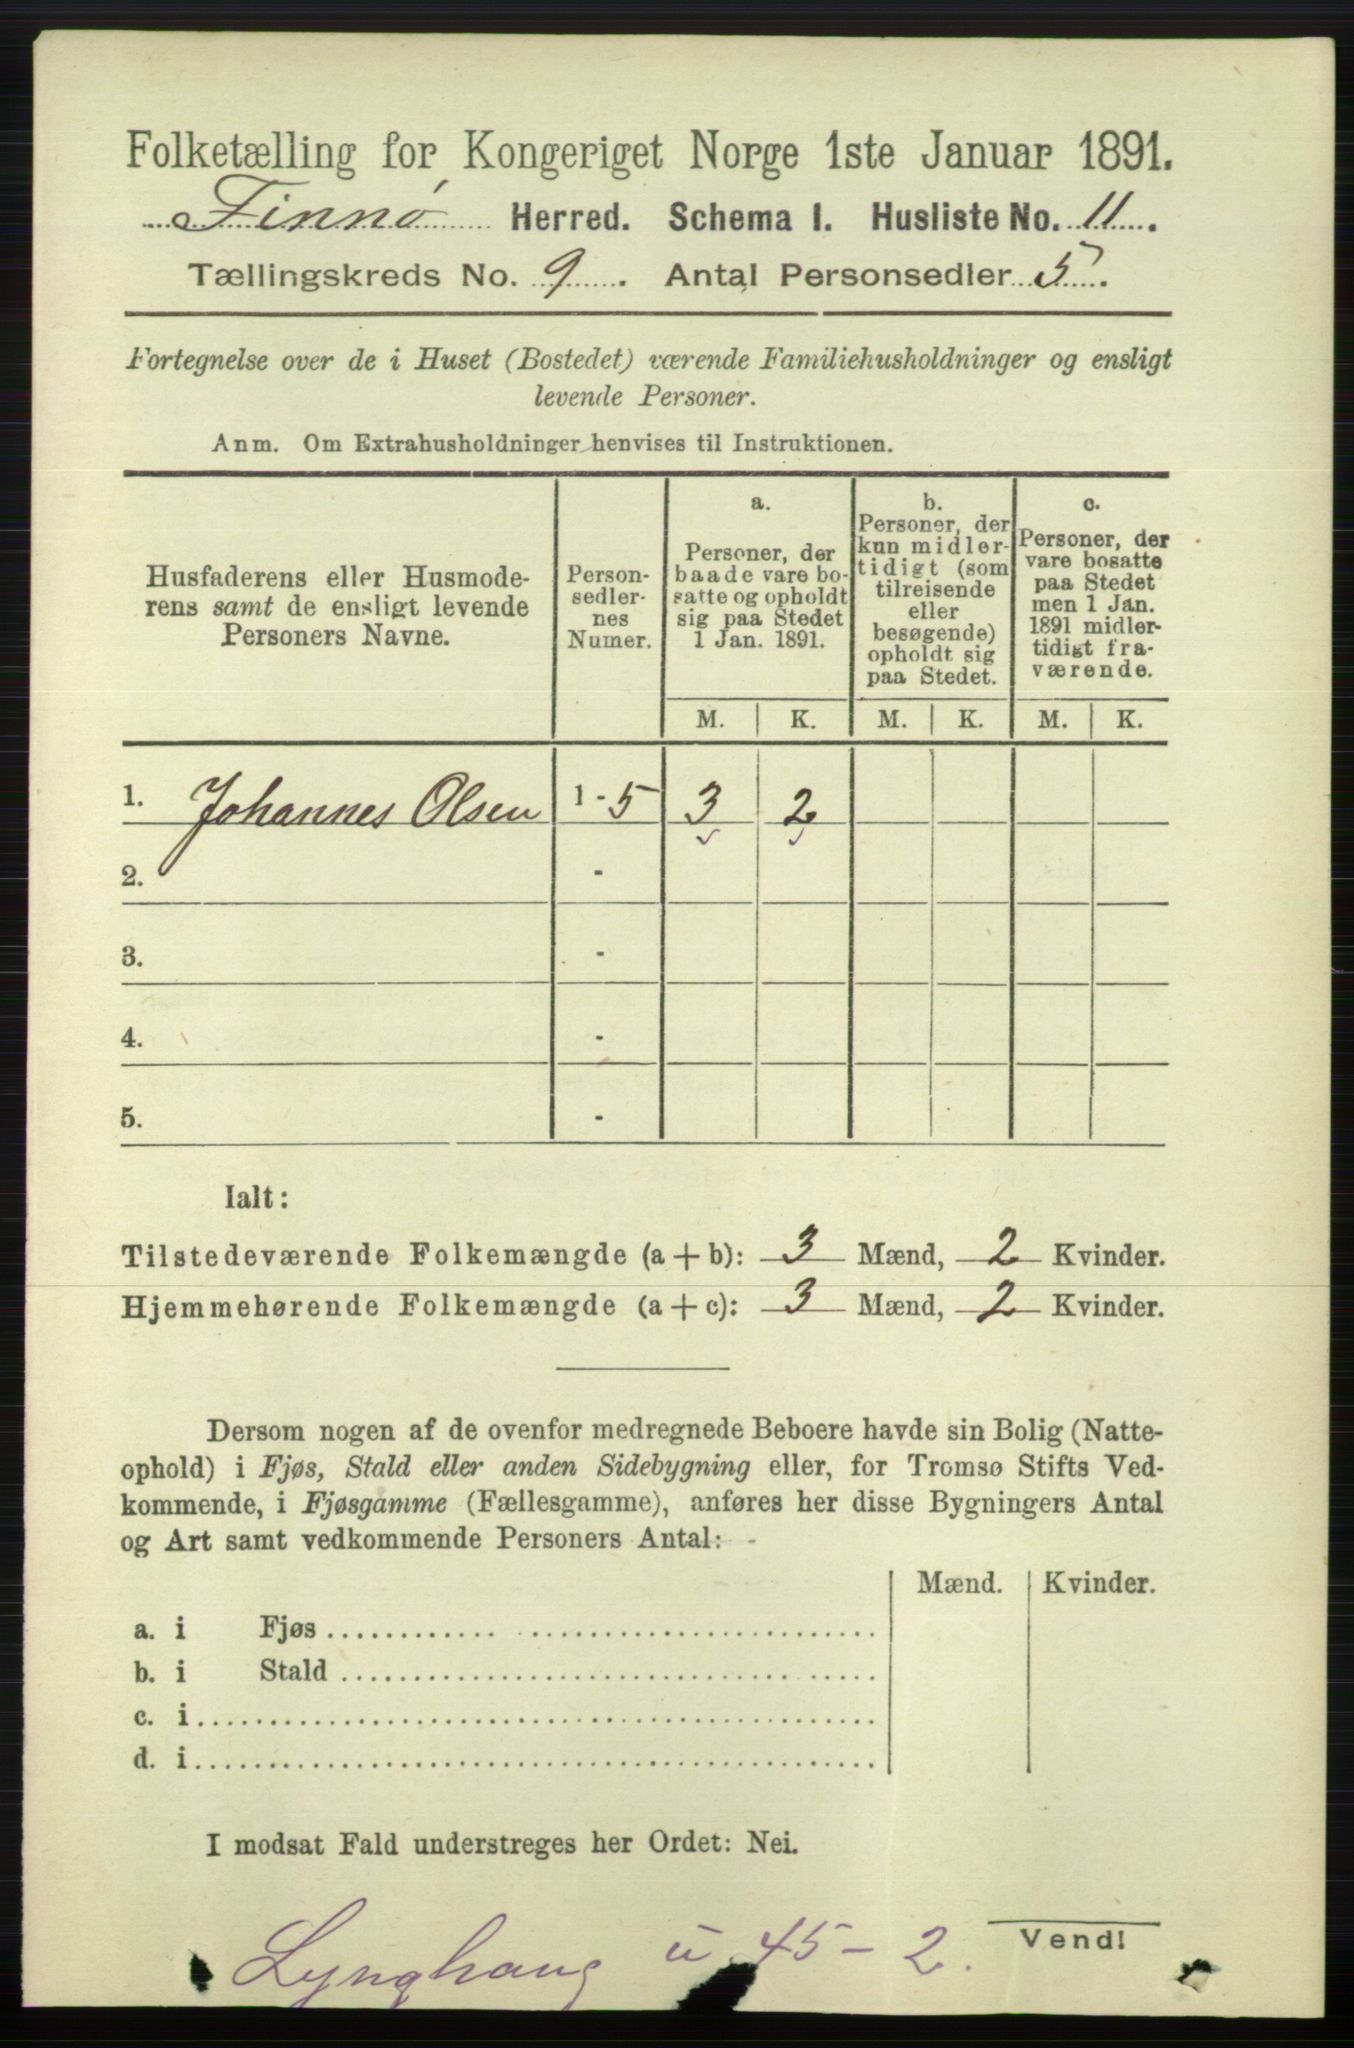 Folketælling for Kongeriget Norge 1ste Januar 1891.
Finnø Herred. Schema I. Husliste No. 11.
Tællingskreds No. 9. Antal Personsedler 5.
Fortegnelse over de i Huset (Bostedet) værende Familiehusholdninger og ensligt
levende Personer.
Anm. Om Extrahusholdninger henvises til Instruktionen.
Husfaderens eller Husmode-
rens samt de ensligt levende
Personers Navne.
Person-
sedler-
nes
Numer.
a.
Personer, der
baade vare bo-
satte og opholdt
sig paa Stedet
1 Jan. 1891.
b.
Personer, der
kun midler-
tidigt (som
tilreisende
eller
besøgende)
opholdt sig
paa Stedet.
c.
Personer, der
vare bosatte
paa Stedet
men 1 Jan.
1891 midler-
tidigt fra-
værende.
M. K. M. K. M. K.
1. Johannes Olsen 1-5 3 2
2. -
3. -
4. -
5. -
Ialt:
Tilstedeværende Folkemængde (a+b): 3 Mænd, 2 Kvinder.
Hjemmehørende Folkemængde (a+c): 3 Mænd, 2 Kvinder.
Dersom nogen af de ovenfor medregnede Beboere havde sin Bolig (Natte-
ophold) i Fjøs, Stald eller anden Sidebygning eller, for Tromsø Stifts Ved-
kommende, i Fjøsgamme (Fællesgamme), anføres her disse Bygningers Antal
og Art samt vedkommende Personers Antal: -
Mænd. Kvinder.
a. i Fjøs
b. i Stald
c. i
d. i
I modsat Fald understreges her Ordet: Nei.
Lynghaug u 45-2.
Vend!